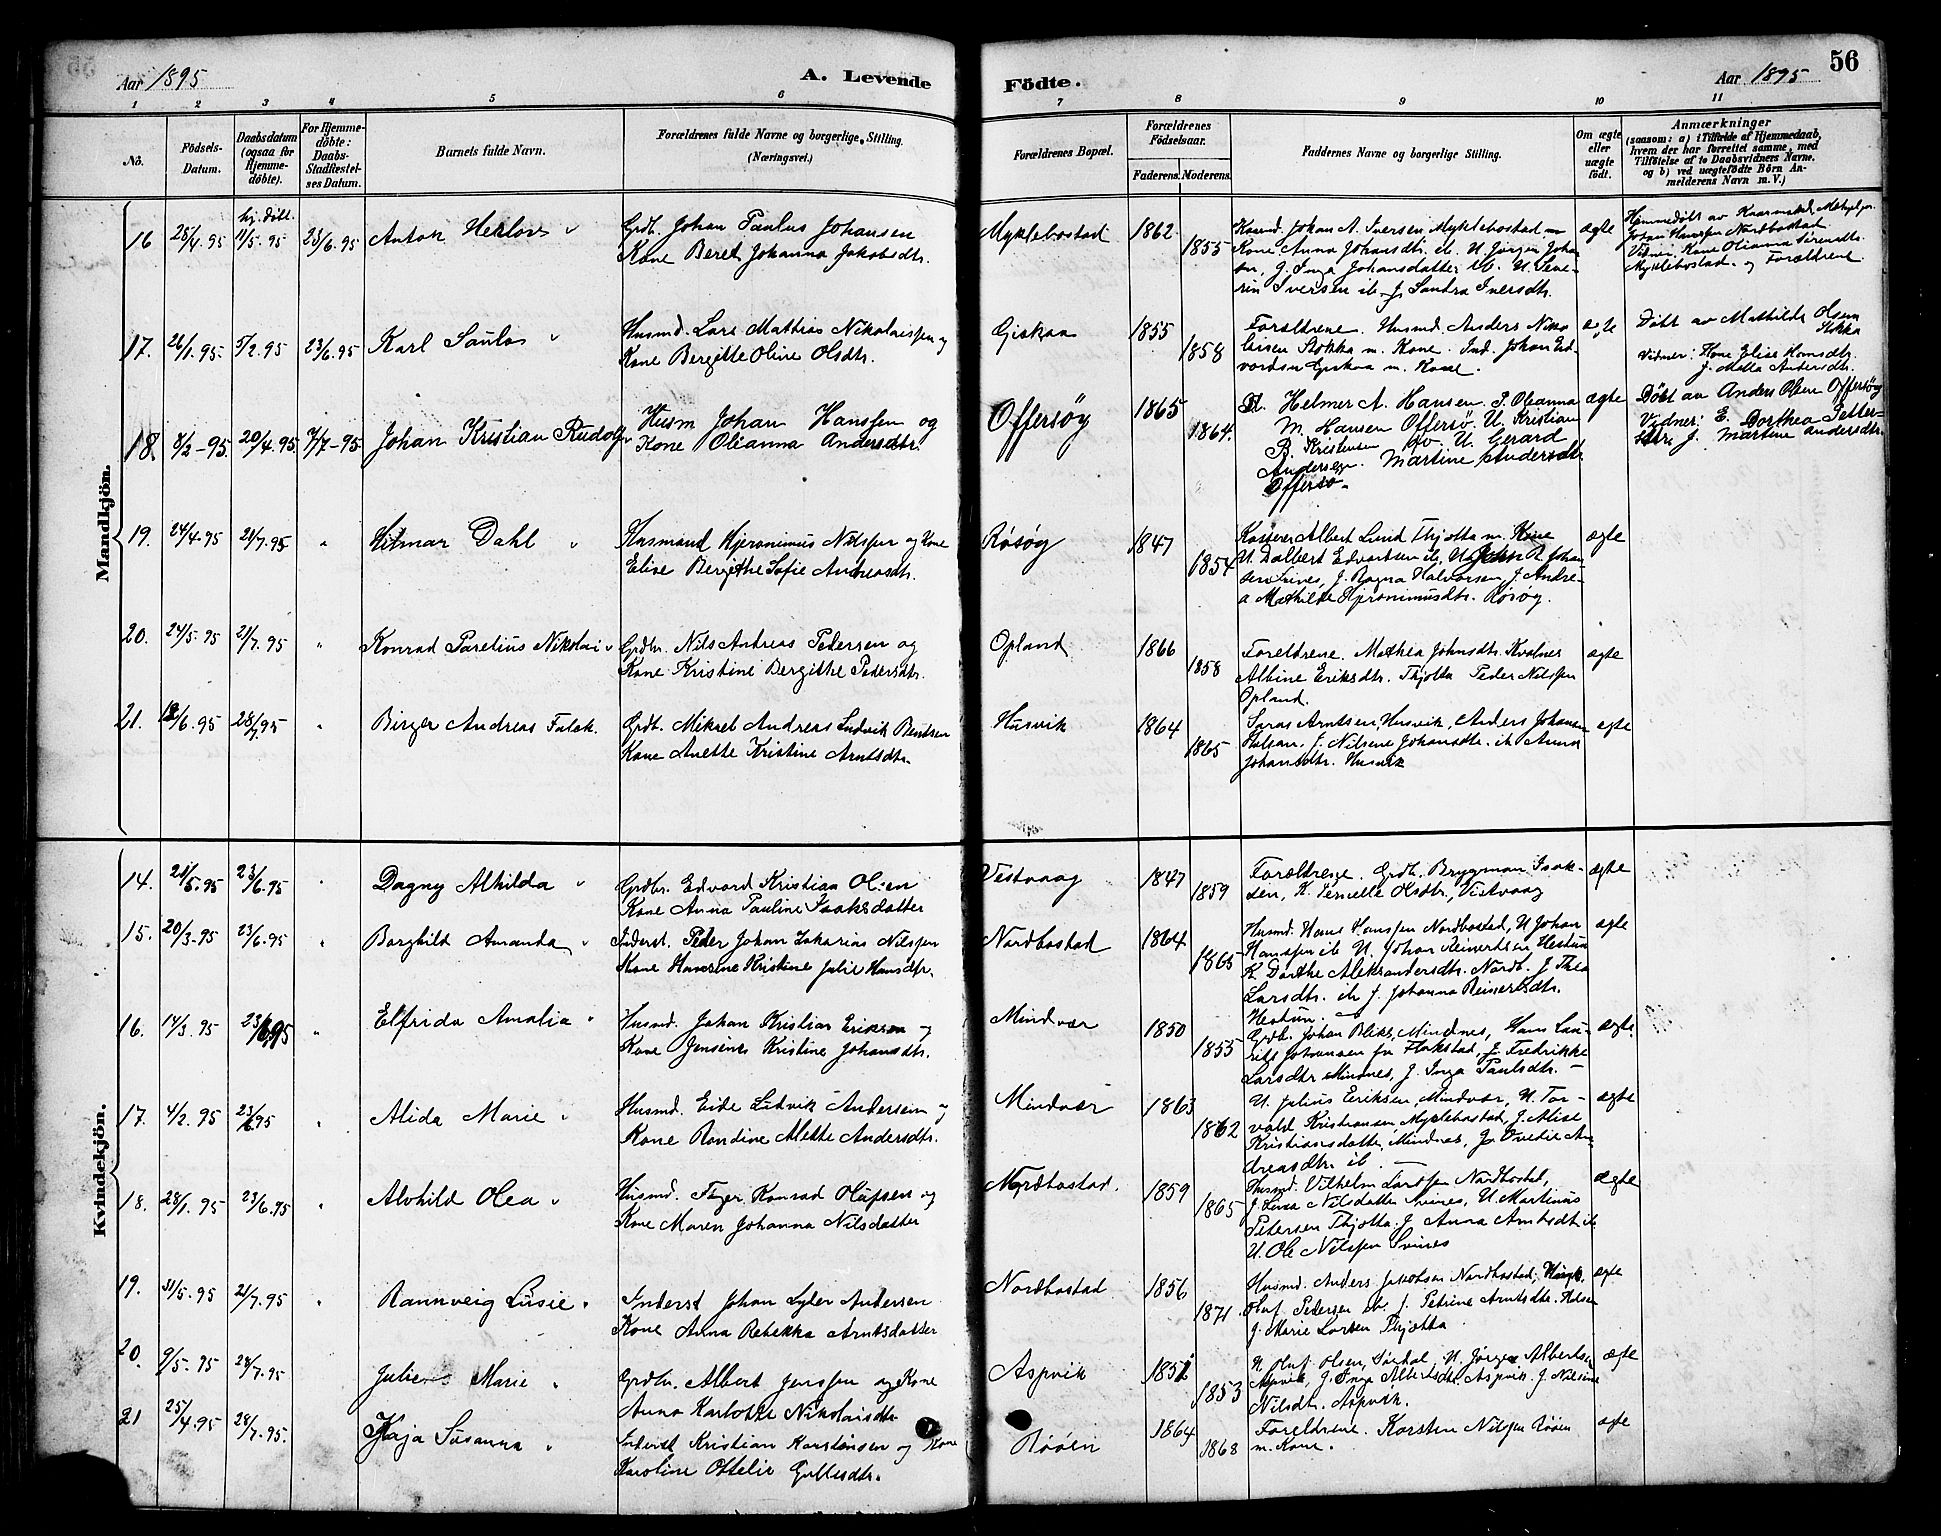 Aar 1895
A. Levende
Födte.
Aar 1895
56
1 2 3 4 5 6 7 8 9 10 11
No.
Födsels-Datum.
Daabsdatum (ogsaa for Hjemme-döbte).
For Hjemme-döbte: Daabs-Stadfæstel-ses Datum.
Barnets fulde Navn.
Forældrenes fulde Navne og borgerlige Stilling.
(Næringsvei.)
Forældrenes Bopæl.
Forældrenes Födselsaar.
Faderens. Moderens.
Faddernes Navne og borgerlige Stilling.
Om ægte eller uægte födt.
Anmærkninger
(saasom: a) i Tilfælde af Hjemmedaab,
hvem der har forrettet samme, med
Tilföielse af to Daabsvidners Navne.
og b) ved uægtefödte Börn An-
melderens Navn m. V.)
Mandkjön.
16 25/4.95 hj.döbt. 11/5.95 23/6.95
Grdb. Johan Paulus Johansen
Kone Beret Johanna Jakobsdtr.
Myklebostad 1862 1855
Kone Anna Johansdtr. ib. U. Jørgen Johan
sen, J. Inga Johansdatter ib. U. Seve-
rin Iversen ib. J. Sandra Iversdtr.
ægte
Johan Hanssen Nordbostad
Vidner: Kone Olianna Sörensdtr.
Myklebostad og Forældrene.
17. 26/1.95. 5/2.95 23/6.95
Karl Saulos
Husmd. Lars Mathias Nikolaissen og
Kone Bergitte Oline Olsdtr.
Giskaa 1855 1858
Forældrene. Husmd. Anders Niko
laisen Stokka m. Kone. Ind. Johan Ed-
vardsen Giskaa m. Kone.
ægte
Döbt av Mathilde Olsen
Stokka
Vidner: Kone Elise Hansdtr.
J. Matta Andersdtr.
18. 8/2-95. 20/4.95. 7/7-95.
Johan Kristian Rudolf
Husm Johan Hanssen og
Kone Olianna Andersdtr.
Offersöy 1865 1864.
Helmer A. Hansen P. Oleanna
M. Hansen Offersö. U. Kristian
B. Kristensen U. Gerard
Andersen. Martine Andersdtr
Offersö.
ægte
Döbt av Anders Olsen Offersöy
Vidner: E. Dorthea Petter-
sdtr. J. Martine Andersdtr.
19. 24/4.95 21/7.95 "
Hilmar Dahl
Husmand Hjeronimus Nilssen og Kone
Elise Bergethe Sofie Andreasdtr.
Røsøy 1847 1854
Albert Lund Thjøtta m. Kone
U. Dalbert Edvartsen ib. U. John R. Johan
sen Svines, J. Ragna Halvorsen, J. Andre-
a Mathilde Hjeronimusdtr. Røsøy.
ægte
20. 24/5.95 21/7.95 "
Konrad Parelius Nikolai
Grdbr. Nils Andreas Pedersen og
Kone Kristine Bergitte Pedersdtr.
Opland 1866 1858
Forældrene. Mathea Johnsdtr. Kvalnes
Albine Eriksdtr. Thjøtta Peder Nilssen
Opland.
ægte
21. 12/6.95 28/7.95 "
Birger Andreas Falck.
Grdb. Mikael Andreas Ludvik Bentsen
Kone Anette Kristine Arntsdtr.
Husvik 1864 1865
Arntsen, Husvik, Anders Johansen
J. Nilsene Johansdtr. ib Anna
Johansdtr. Husvik
ægte
Kvindekjön.
14. 21/5.95 23/6.95 "
Dagny Alhilda
Grdbr. Edvard Kristian Olsen
Kone Anna Pauline Isaksdatter
Vestvaag 1847 1859
Forældrene. Grdb. Brygman Isak-
sen, K. Pernelle Olsdtr., Vistvaag
ægte
15. 20/3.95 23/6.95 "
Borghild Amanda
Inderst. Peder Johan Zakarias Nilssen
Kone Haverine Kristine Julie Hansdtr.
Nordbostad 1864 1865
Husmd. Hans Hanssen Nordbostad, U. Johan
Hanssen ib U. Johan Reinertsen Hestun
K. Dorthe Aleksandersdtr. Nordb. J. Thea
Larsdtr. ib J. Johanna Reinertsdtr.
Hestun.
ægte
16. 14/3.95 23/6.95 "
Elfrida Amalia
Husmd. Johan Kristian Eriksen og
Kone Jensine Kristine Johansdtr.
Mindvær 1850 1855
Grdb. Johan Blix, Mindnes, Hans Lau-
ritz Johansen fr Flokstad, J. Fredrikke
Larsdtr Mindnes, J. Inga Paulsdtr.
ægte
17. 4/2.95 23/6.95 "
Alida Marie
Husmd. Eide Ludvik Andersen og
Kone Rondine Alette Andersdtr.
Mindvær 1863 1862
U. Julius Eriksen, Mindvær, U. Tor-
vald Kristiansen Myklebostad, J. Alise
Kristiansdatter, Mindnes, J. Ovedie An-
dreasdtr. ib.
ægte
18. 28/1.95 23/6.95 "
Alvhild Olea
Husmd. Inger Konrad Olufsen og
Kone Maren Johanna Nilsdatter
Nordbostad. 1859 1865
Husmd. Vilhelm Larssen Nordbostad,
J. Lina Nilsdatter Svines, U. Martinus
Petersen Thjøtta. J. Anna Arntsdtr ib
U. Ole Nilssen Svines
ægte
19. 31/5.95 21/7.95 "
Rannveig Lusie
Inderst Johan Lyder Andersen
Kone Anna Rebekka Arntsdatter
Nordbostad 1856 1871.
Husmd. Anders Jakobsen Nordbostad,
Oluf Petersen ib. J. Petrine Arntsdtr.
J. Marie Larsen Thjøtta.
ægte
20. 9/5.95 28/7.95
Julie Marie
Grdbr. Albert Jenssen og Kone
Anna Karlotte Nikolaisdtr
Aspvik 1851 1853
U. Oluf Olsen, Sørdal, U. Jørgen Albertsen
Aspvik, J. Inga Albertsdtr. Aspvik. J. Nilsine
Nilsdtr. Aspvik.
ægte
21 25/4.95 28/7.95.
Kaja Susanna
Inderst Kristian Karstensen og Kone
Karoline Ottelie
Røöen 1864 1868
Forældrene. Karsten Nilssen Røöen
m. Kone.
ægte